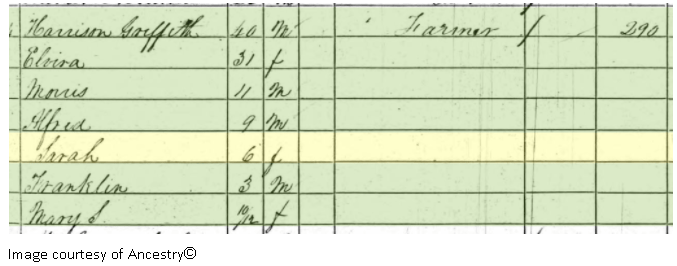 Harrison Griffith 40 M Farmer / 290
Elvira 31 f
Morris 11 M
Alfred 9 M
Sarah 6 f
Franklin 3 M
Mary S. 10/12 f
Image courtesy of Ancestry©